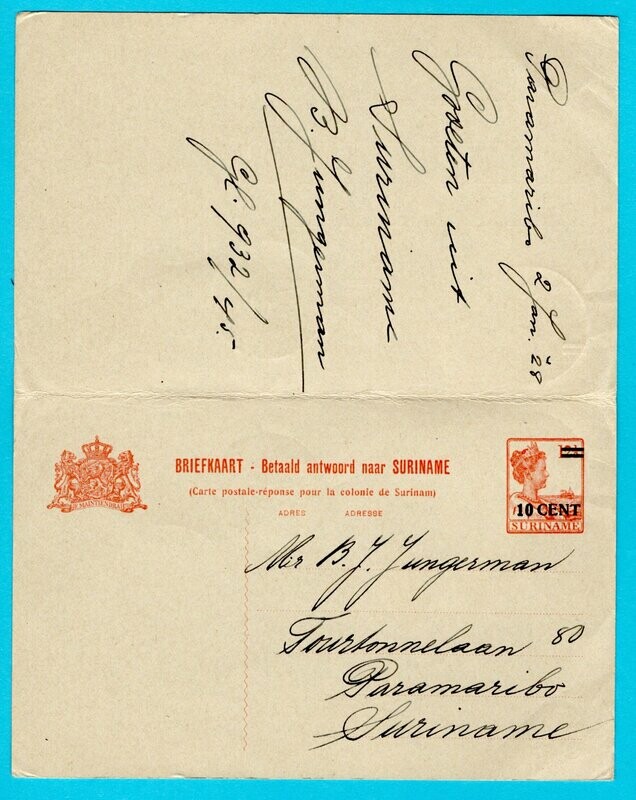 Paramaribo 2 Jan. '28
Groeten uit
Suriname
B. J. Jungerman
Gl. 932/45.
JE MAINTIENDRAI
BRIEFKAART - Betaald antwoord naar SURINAME
(Carte postale-réponse pour la colonie de Surinam)
ADRES ADRESSE
10 CENT
SURINAME
Mr B. J. Jungerman
Tourtonnelaan 80
Paramaribo
Suriname